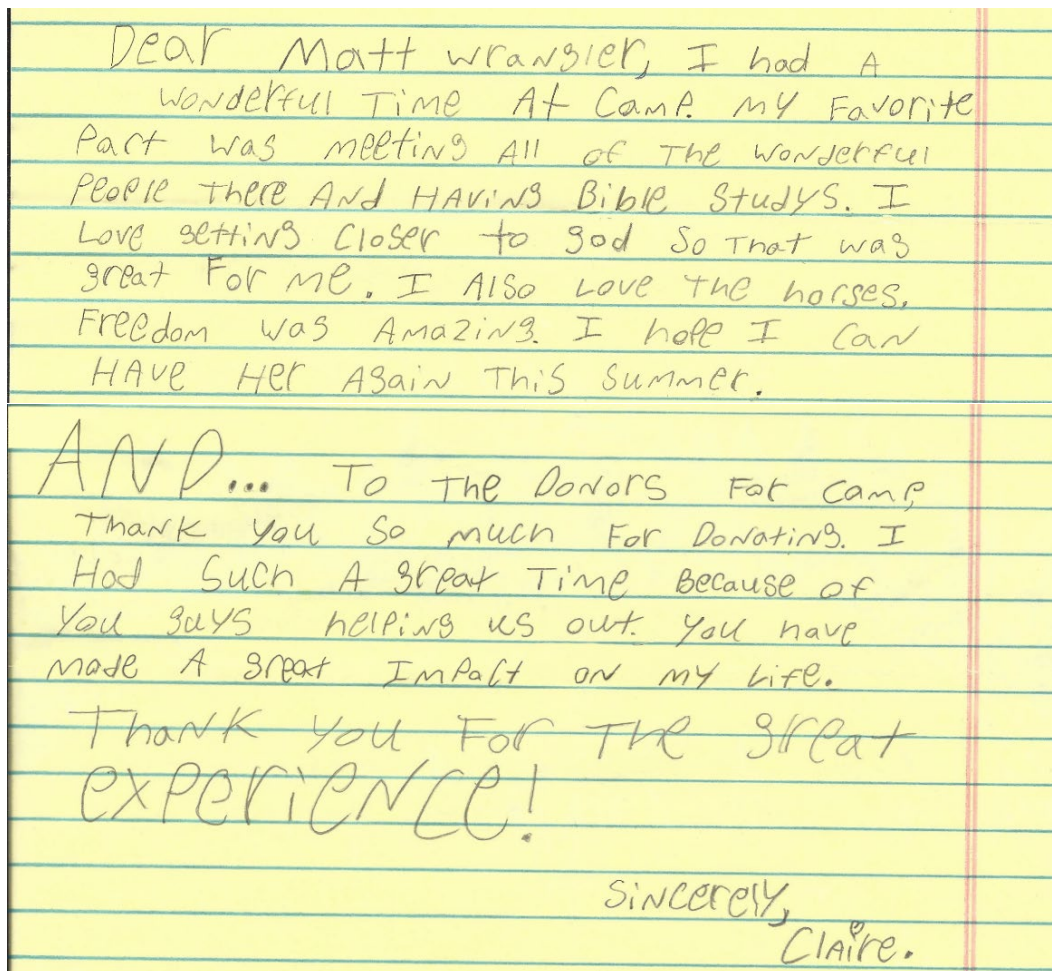 Dear Matt wrangler, I had A
wonderful Time At Camp. My Favorite
Part was meeting All of The wonderful
People There And HAviNg Bible Studys. I
Love getting Closer to god So That was
great For me. I Also Love the horses.
Freedom was AmaziNg. I hope I CaN
HAve Her AgaiN This Summer.
AND... To The Donors For Camp,
ThaNk you So much For DonatiNg. I
Had Such A great Time Because of
You guys helpiNg us out. You have
made A great Impact oN my Life.
ThaNk you For The great
experieNce!
SiNcerely,
ClAire.